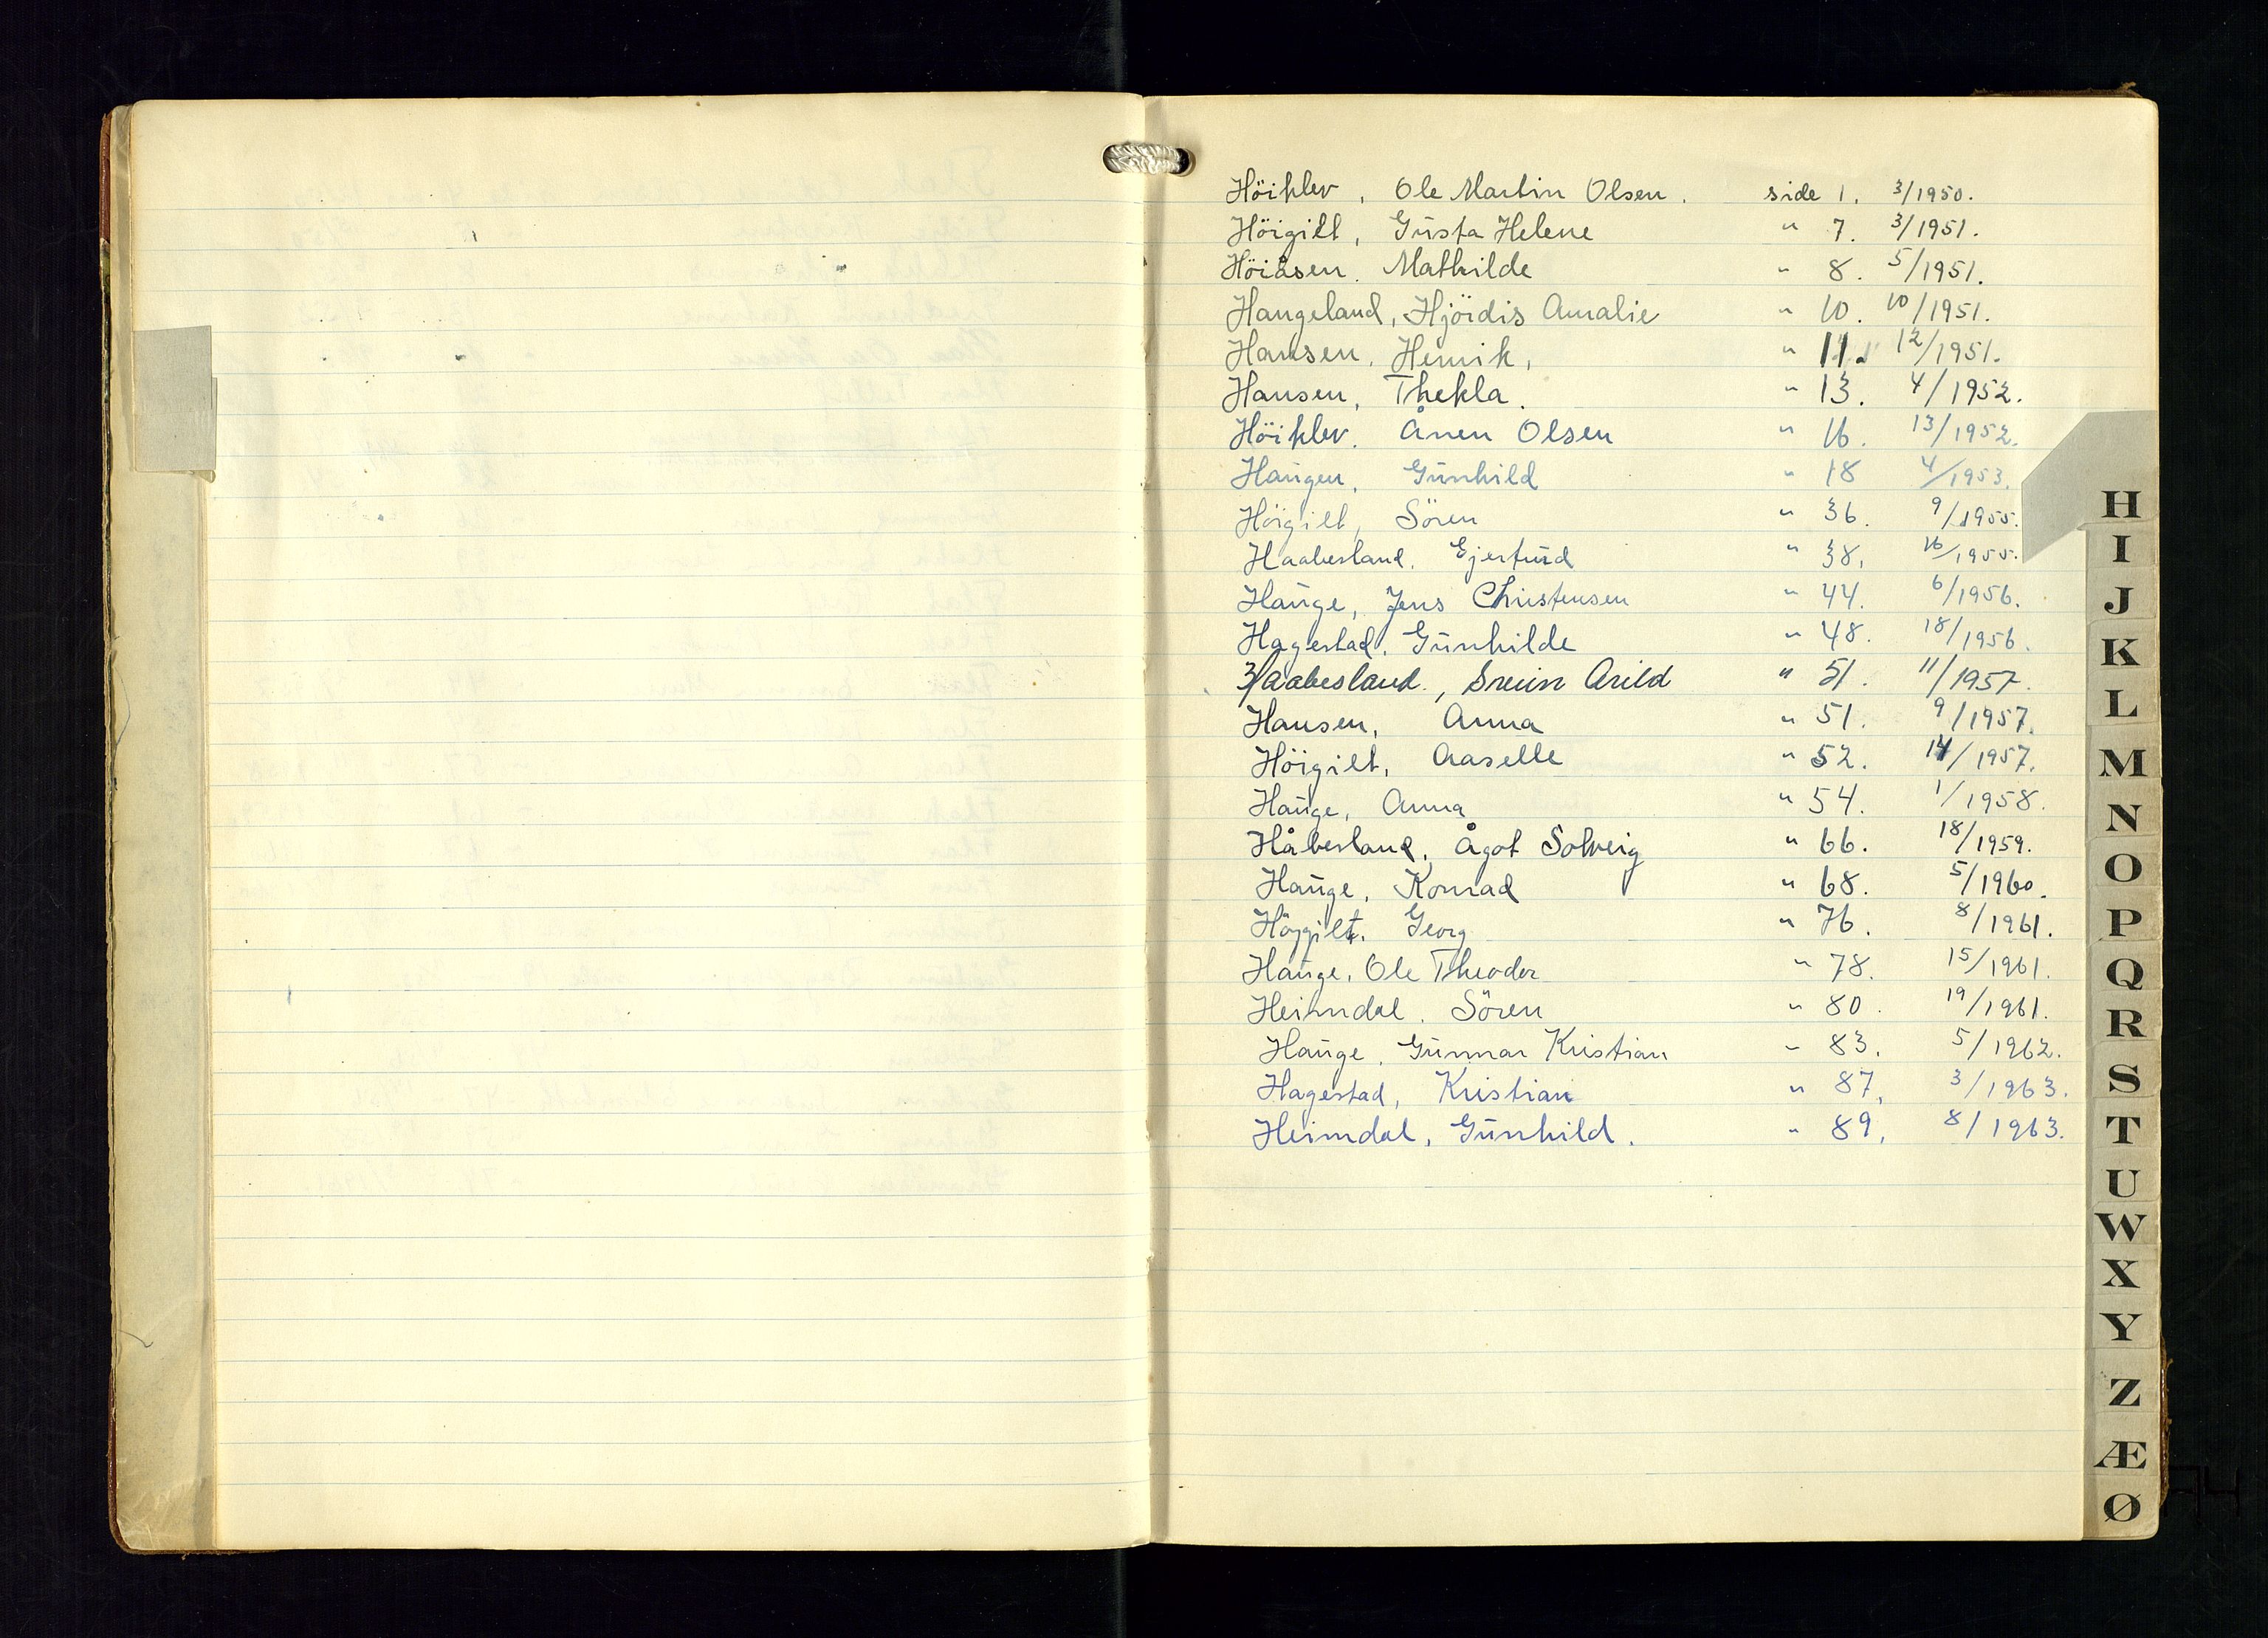 Höiklev, Ole Martin Olsen. side 1. 3/1950.
Höigilt, Gusta Helene " 7. 3/1951.
Höiåsen. Mathilde " 8. 5/1951.
Haugeland, Hjördis Amalie " 10. 10/1951.
Hansen, Henrik, " 11. 12/1951.
Hansen, Thekla. " 13. 4/1952.
Höiklev. Ånen Olsen " 16. 13/1952.
Haugen, Gunhild " 18 4/1953.
Höigilt, Sören " 36. 9/1955.
Haabesland. Gjertrud " 38, 16/1955.
Hauge, Jens Christensen " 44. 6/1956.
Hagestad. Gunhilde " 48. 18/1956.
Haabesland., Svein Arild " 51. 11/1957.
Hansen, Anna " 51. 9/1957.
Höigilt, Aaselle " 52. 14/1957.
Hauge, Anna " 54. 1/1958.
Håbesland, Ågot Solveig " 66. 18/1959.
Hauge, Konrad " 68. 5/1960.
Höygilt. Georg " 76. 8/1961.
Hauge, Ole Theodor " 78. 15/1961.
Heimdal. Sören " 80. 19/1961.
Hauge. Gunnar Kristian " 83. 5/1962.
Hagestad, Kristian " 87, 3/1963.
Heimdal, Gunhild. " 89, 8/1963.
H
I
J
K
L
M
N
O
P
Q
R
S
T
U
W
X
Y
Z
Æ
Ø